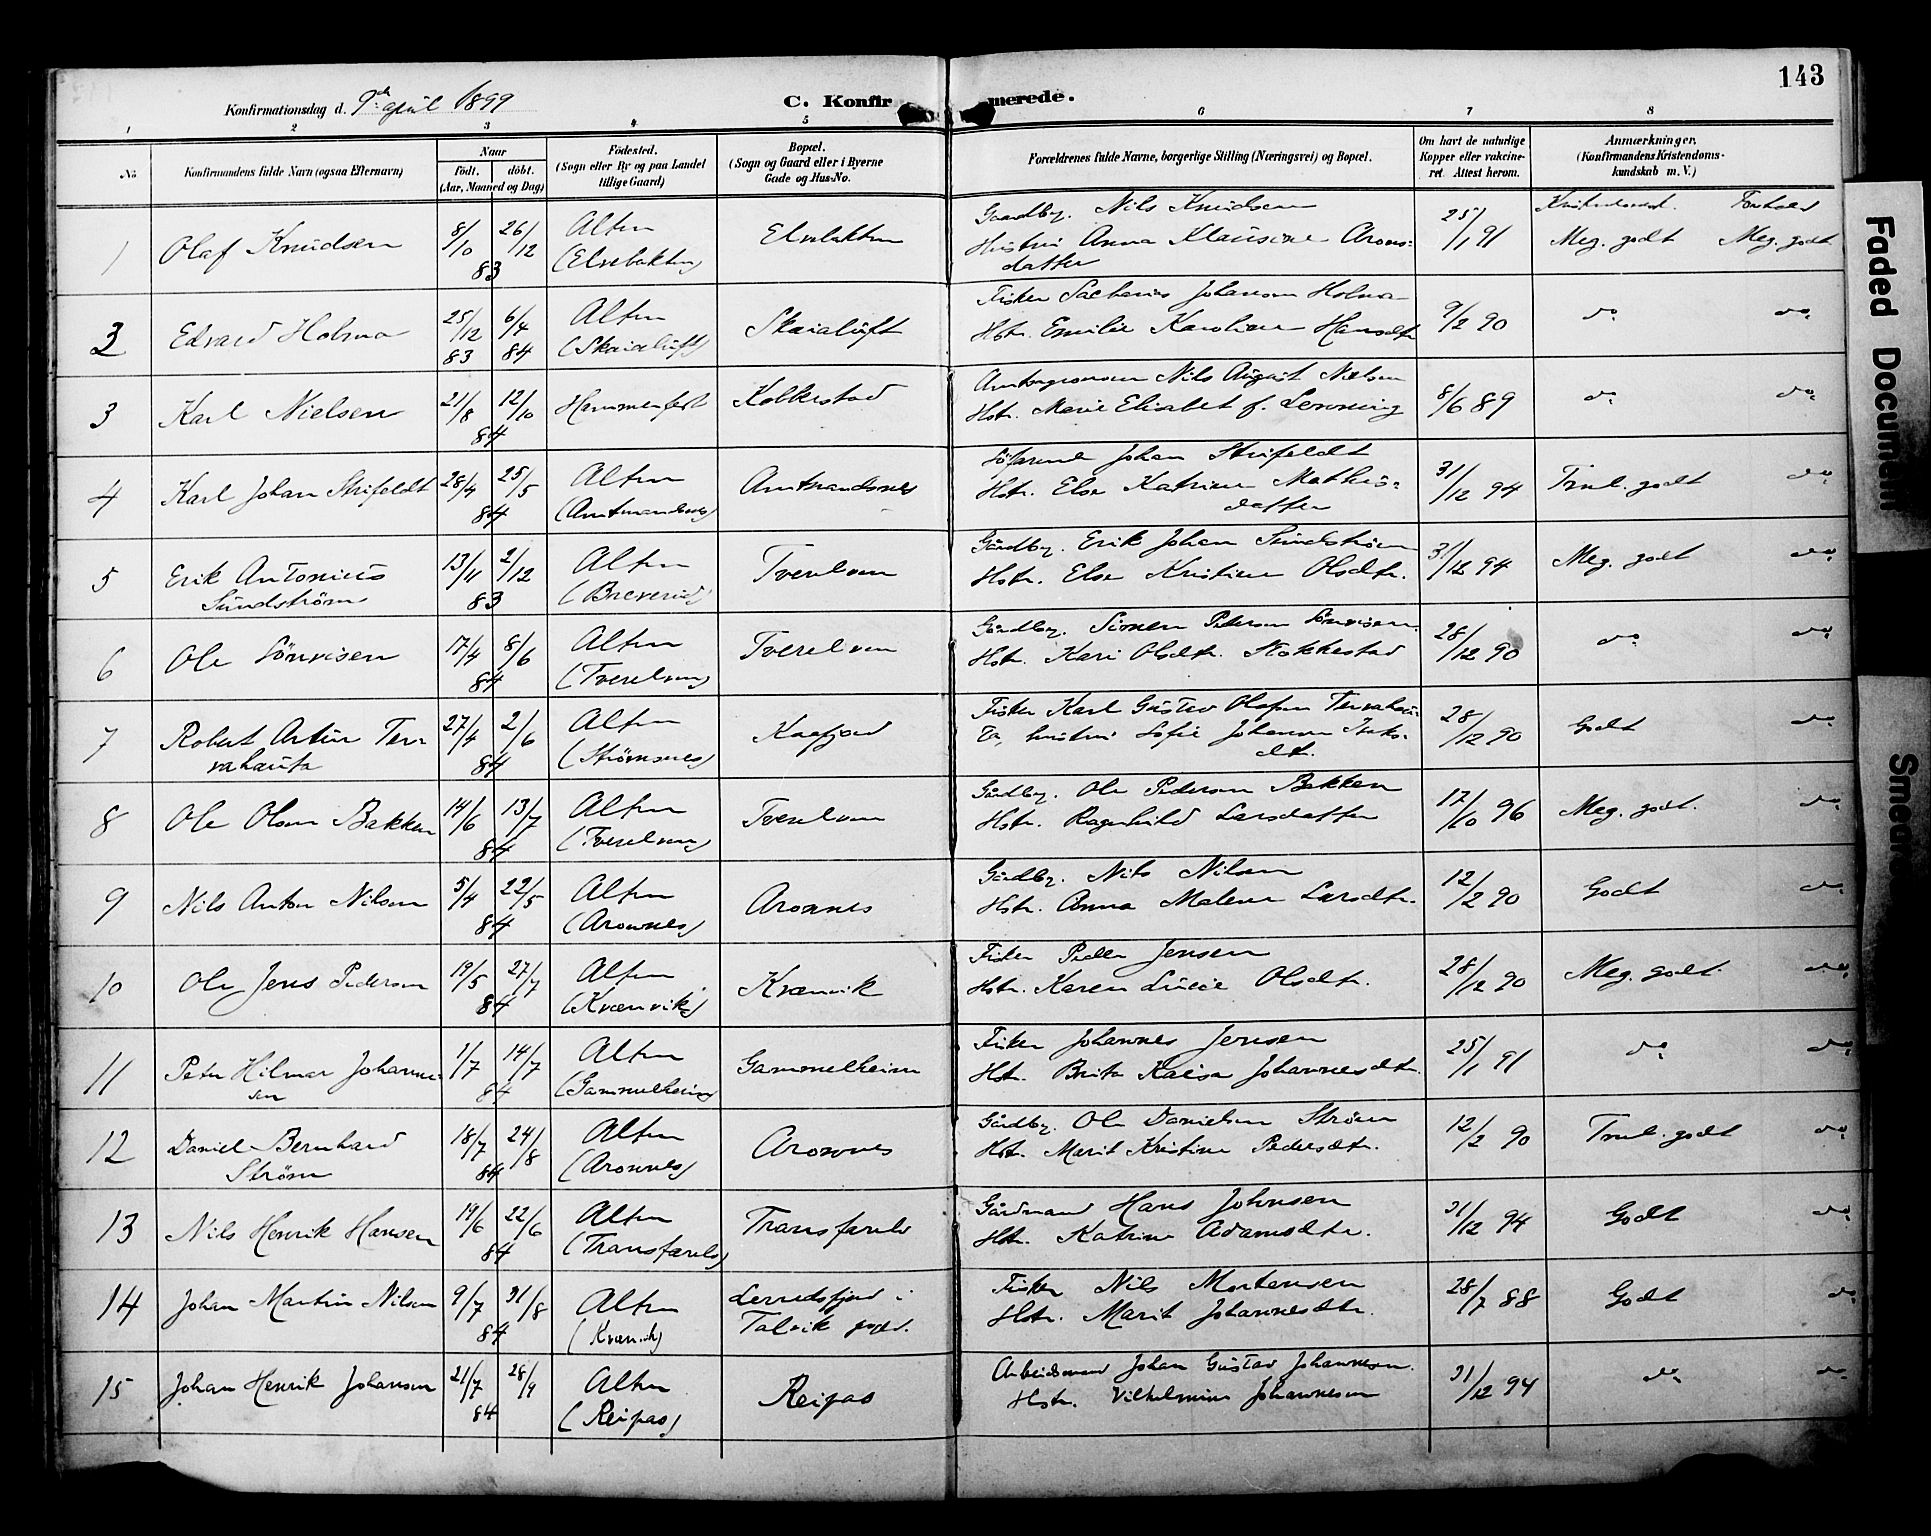 143
Konfirmationsdag d. 9de april 1899
C. Konfirmerede.
1 2 3 4 5 6 7 8
No
Konfirmandens fulde Navn (ogsaa Efternavn)
Naar
födt. döbt.
(Aar, Maaned og Dag)
Födested.
(Sogn eller By og paa Landet
tillige Gaard)
Bopæl.
(Sogn og Gaard eller i Byerne
Gade og Hus-No.
Forældrenes fulde Navne, borgerlige Stilling (Næringsvei) og Bopæl.
Om havt de naturlige
Kopper eller vakcine-
ret Attest herom.
Anmærkninger.
(Konfirmandens Kristendoms-
kundskab m. V.)
Kristendomsk. Forhold
1 Olaf Knudsen 8/10 26/12 83 Alten (Elvebakken) Elvebakken
Gaardbr. Nils Knudsen
Hustru Anna Klausine Arons-
datter
25/1 91 Meg. godt Meg. godt
2 Edvard Holma 25/12 83 6/4 84 Alten (Skaialuft) Skaialuft
Fisker Sacharias Johansen Holma
Hstr. Emilie Karoline Hansdtr
9/2 90 do do
3 Karl Nielsen 21/8 12/10 84 Hammerfest Kolkestad
Amtsgronom Nils August Nielsen
Hstr. Marie Elisabet f. Lemming
8/6 89 do do
4 Karl Johan Strifeldt 28/4 25/5 84 Alten (Amtmandsnes) Amtmandsnes
Söfarende Johan Strifeldt
Hstr. Else Katrine Mathis-
datter
31/12 94 Tml. godt do
5 Erik Antonius
Sundström 13/11 2/12 83 Alten (Breverud) Tverelven
Gårdbr. Erik Johan Sundström
Hstr. Else Kristine Olsdtr.
31/12 94 Meg. godt do
6 Ole Sönvisen 17/4 8/6 84 Alten (Tverelven) Tverelven
Gårdbr. Simen Pedersen Sönvisen
Hstr. Kari Olsdtr. Stokkestad
28/12 90 do do
7 Robert Artur Ter-
vahauta 27/4 2/6 84 Alten (Strömsnes) Kaafjord
Fisker Karl Gustav Olsen Tervahau-
ta, hustru Sofie Johanne Isaks-
dtr.
28/12 90 Godt do
8 Ole Olsen Bakken 14/6 13/7 84 Alten (Tverelven) Tverelven
Gårdbr. Ole Pedersen Bakken
Hstr. Ragnhild Larsdatter
17/10 96 Meg. godt. do
9 Nils Anton Nilsen 5/4 22/5 84 Alten (Aronnes) Aronnes
Gårdbr. Nils Nilsen
Hstr. Anna Malene Larsdtr.
12/2 90 Godt do
10 Ole Jens Pedersen 19/5 27/7 84 Alten (Kvænvik) Kvænvik
Fisker Peder Jensen
Hstr. Karen Lucie Olsdtr.
28/12 90 Meg. godt. do
11 Peter Hilmar Johanne-
sen 1/7 14/7 84 Alten (Gammelheim) Gammelheim
Fisker Johannes Jensen
Hstr. Brita Kaisa Johannesdtr.
25/1 91 do do
12 Daniel Bernhard
Ström 18/7 24/8 84 Alten (Aronnes) Aronnes
Gårdbr. Ole Danielsen Ström
Hstr. Marit Kristine Pedersdtr.
12/2 90 Tml. godt do
13 Nils Henrik Hansen 19/6 22/6 84 Alten (Transfarelv) Transfarelv
Gårdmand Hans Johnsen
Hstr. Katrine Adamsdtr.
31/12 94 Godt do
14 Johan Martin Nilsen 9/7 31/8 84 Alten (Kvænvik) Lerresfjord i
Talvik pgd.
Fisker Nils Mortensen
Hstr. Marit Johannesdtr.
28/7 88 Godt do
15 Johan Henrik Johansen 21/7 28/9 84 Alten (Reipas) Reipas
Arbeidsmand Johan Gustav Johannesen.
Hstr. Vilhelmine Johannesen
31/12 94 do do
Faded Document